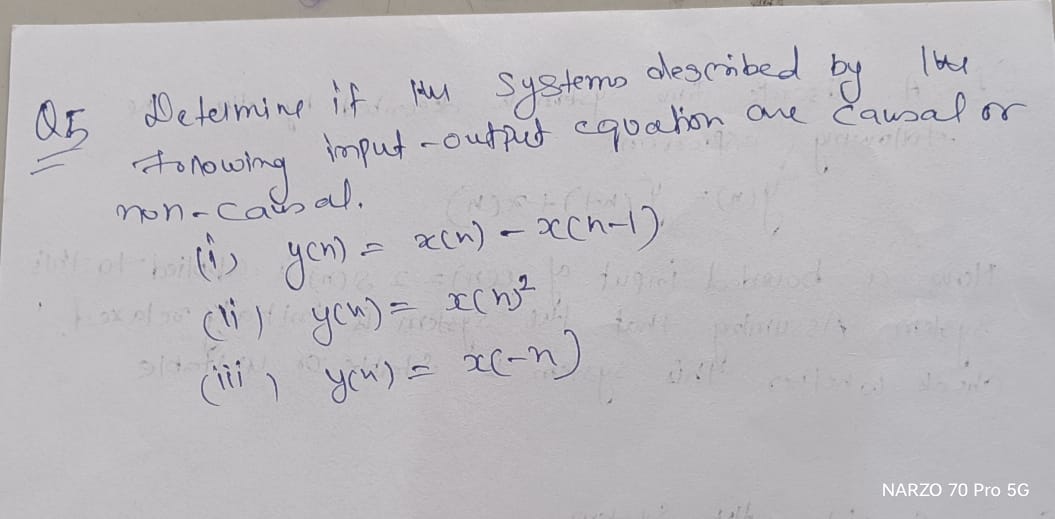 Q5 Determine if the systems described by the
following input-output equation are causal or
non-causal.
(i) y(n) = x(n) - x(n-1)
(ii) y(n) = x(n)²
(iii) y(n) = x(-n)
NARZO 70 Pro 5G